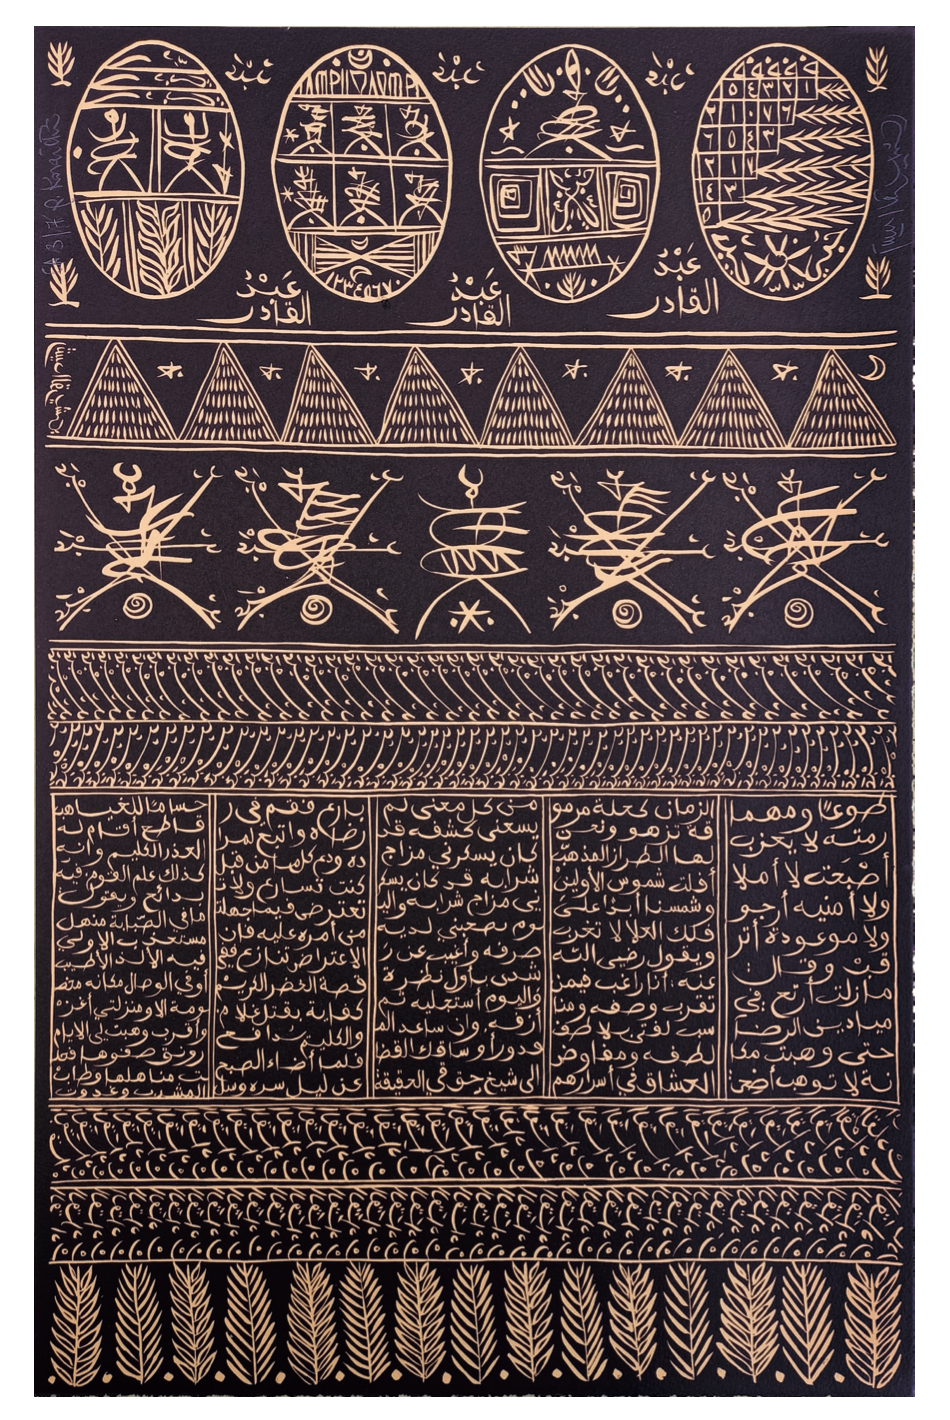 عبد
عبد
عبد
عبد القادر
عبد القادر
عبد القادر
طوعًا ومهما
رمته لا يعزب
لا أملا
ولا أمنيه أرجو
ولا موعودة أتر
قب وقال
مازلت أرتع في
ميادين الرضا
حتى وهبت مكا
نة لا توهب أضحى
الزمان كحلة مرمو
قة تزهو ونحن
لها الطراز المذهب
أفلت شموس الأولين
وشمسنا أبدًا على
فلك العلا لا تغرب
ويقول رضي الله
عنه أنا راغب فيمن
تقرب وصفه ومنا
سب لفتى يلاطف
لطفه ومفاوض
العشاق في أسرارهم
من كل معنى لم
يسعني كشفه قد
كان يسكرني مزاج
شرابه قد كان يسكر
ني مزاج شرابه والي
وم يصحيني لديه
صرفه وأغيب عن ر
شدي بأول نظرة
واليوم أستجليه ثم
أزفه وإن ساعد الم
قدور أو ساقك القضا
إلى شيخ حق في الحقيقة
بارع فقم في ر
ضاه واتبع لمرا
ده ودع كلما من قبل
كنت تسارع ولا ت
تعترض فيما جهلت
من أمره عليه فإن
الاعتراض تنازع ففي
قصة الخضر الكريم
كفاية بقتل غلام
والكليم يدافع
فلما أضاء الصبح
عن ليل سره وسل
حساما للغياهب
قاطع أقام له
العذر الكليم وانه
كذلك علم القوم فيه
بدائع ويقول
ما في الصبابة منهل
مستعذب إلا ولي
فيه الألذ الأطيب
أو في الوصال مكانة مخصو
صة إلا ومنزلتي أعز
وأقرب وهبت لي الأيام
رونق صفوها فحل
ت مناهلها وطاب
المشرب وغدوت